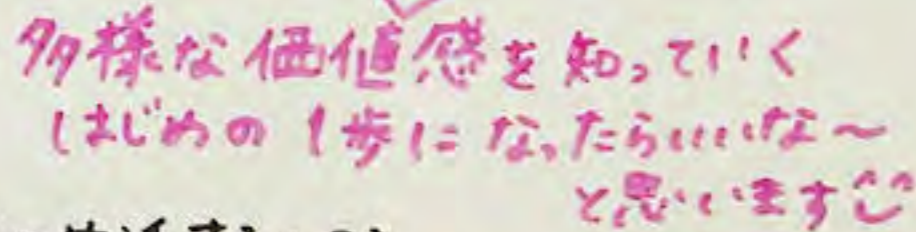 多様な価値感を知っていく
はじめの1歩になったらいいな～
と思います